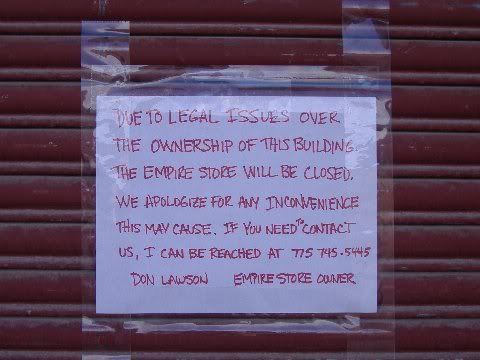 DUE TO LEGAL ISSUES OVER
THE OWNERSHIP OF THIS BUILDING.
THE EMPIRE STORE WILL BE CLOSED.
WE APOLOGIZE FOR ANY INCONVENIENCE
THIS MAY CAUSE. IF YOU NEED TO CONTACT
US, I CAN BE REACHED AT 775 745-5445
DON LAWSON EMPIRE STORE OWNER